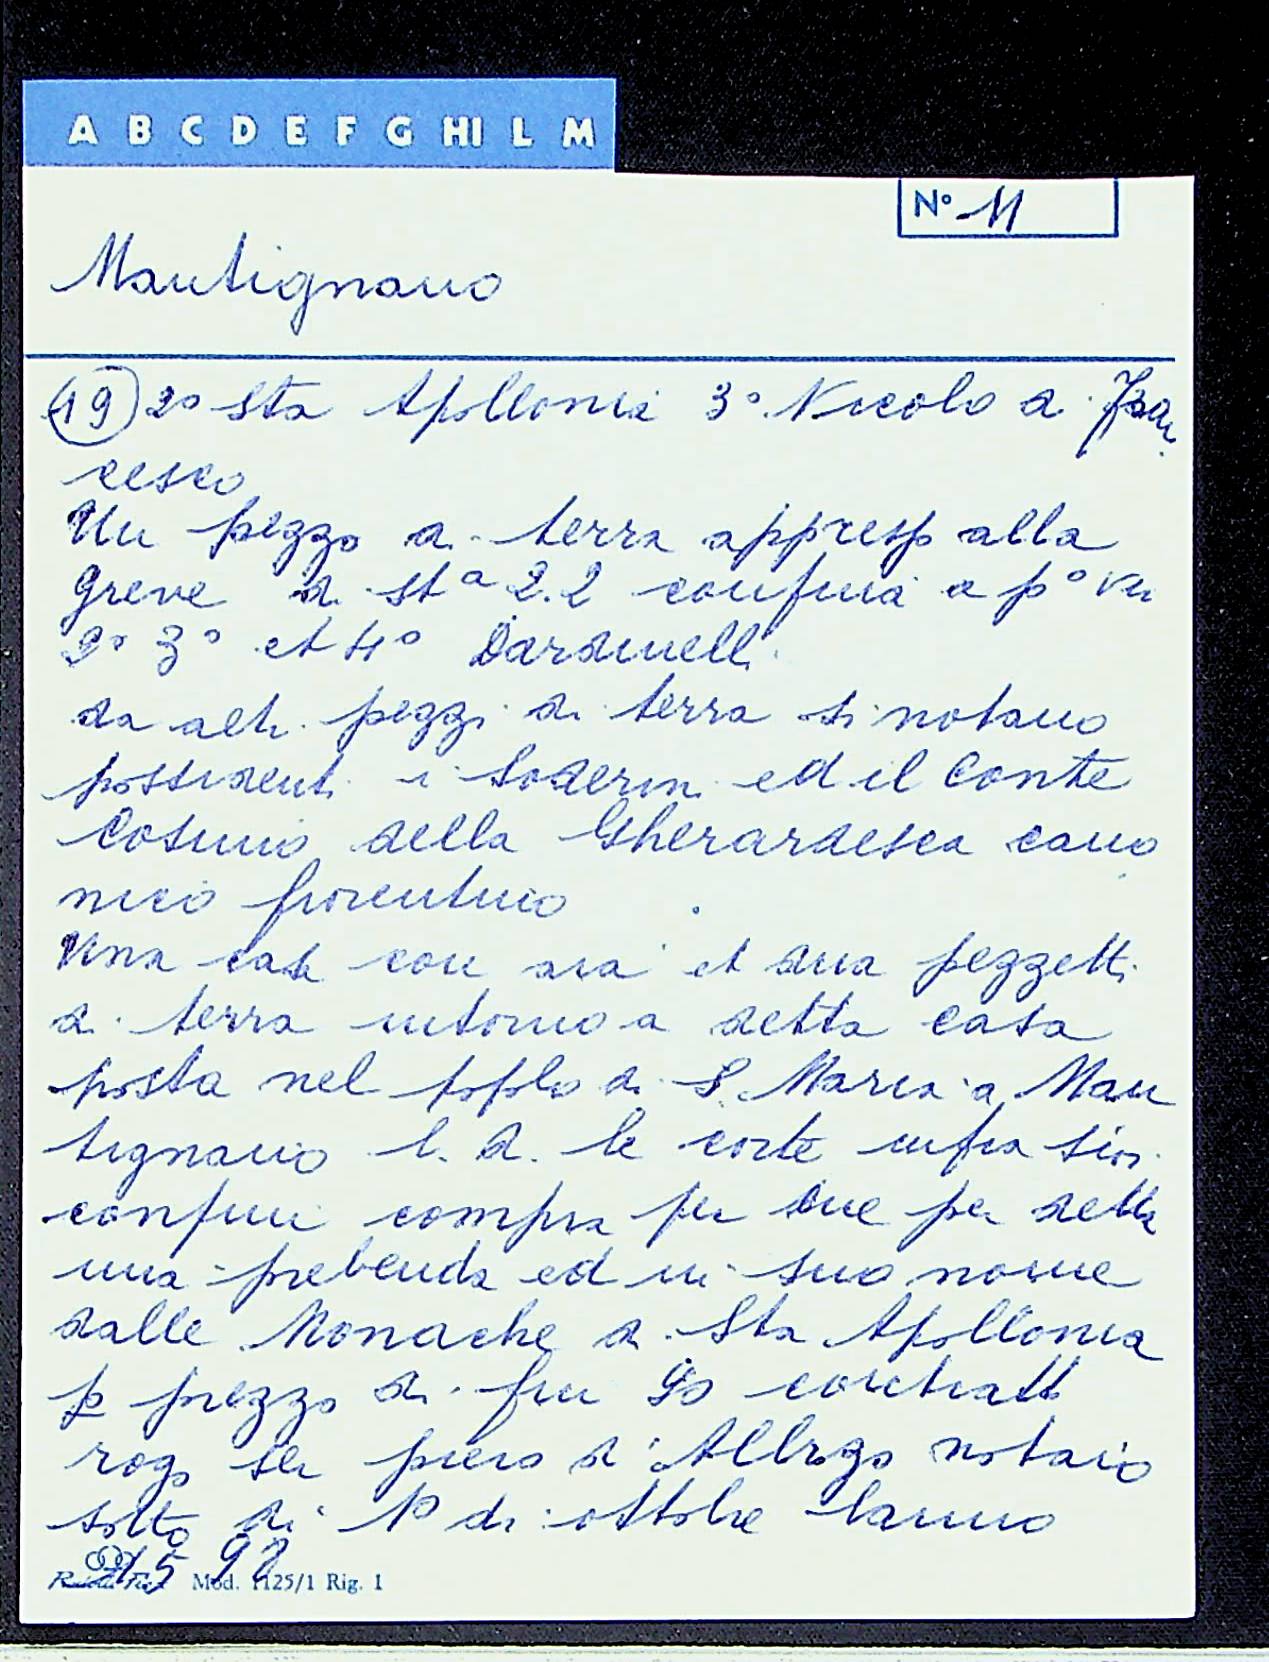 A B C D E F G HI L M
N° 11
Mantignano
(19) 2° Sta Apollonia 3° Niccolo di Fran
cesco
Un pezzo di terra appresso alla
Greve di st a 2.2 confina a p° via
2° 3° et 4° Dardinelli
da altri pezzi di terra si notano
possidenti i Soderini ed il Conte
Cosimo della Gherardesca cano
nico fiorentino
Una casa con aia et dua pezzetti
di terra intorno a detta casa
posta nel popolo di S. Maria a Man
tignano l. d. le corte infra suoi
confini compra per due per detta
una prebenda ed in suo nome
dalle Monache di Sta Apollonia
p prezzo di fiu 90 contratto
rog° ser piero d' Albizo notaio
sotto di 1° di ottobre lanno
1592
Mod. 1125/1 Rig. 1